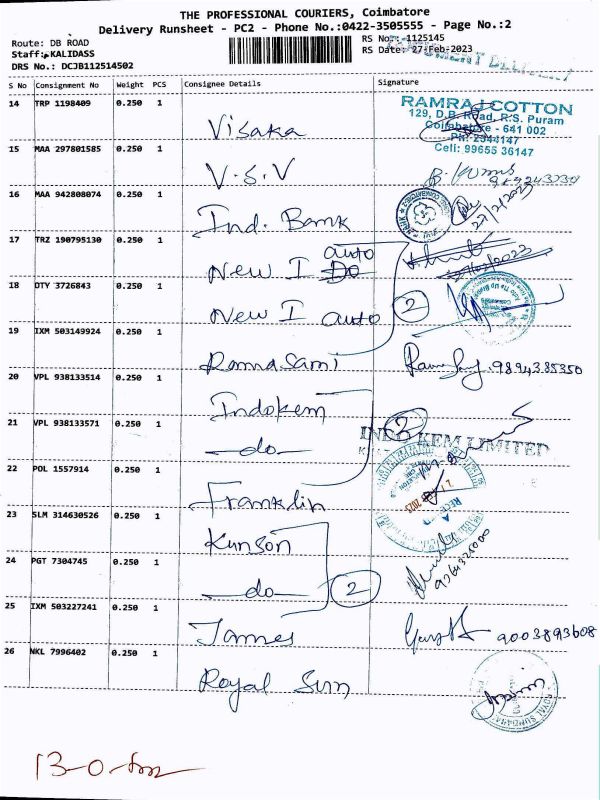 THE PROFESSIONAL COURIERS, Coimbatore
Delivery Runsheet - PC2 - Phone No.:0422-3505555 - Page No.:2
Route: DB ROAD
RS No.: 1125145
Staff: KALIDASS
RS Date: 27-Feb-2023
DRS No.: DCJB112514502
S No Consignment No Weight PCS Consignee Details Signature
14 TRP 1198409 0.250 1 Visaka
RAMRAJ COTTON
129, D.B. Road, R.S. Puram
Coimbatore - 641 002
Ph: 2544147
Cell: 99655 36147
15 MAA 297801585 0.250 1 V.S.V
16 MAA 942808074 0.250 1 Ind. Bank
27/2/2023
17 TRZ 190795130 0.250 1 New I auto
18 DTY 3726843 0.250 1 New I auto 2
19 IXM 503149924 0.250 1 Ramasami 9894385350
20 VPL 938133514 0.250 1 Indokem
21 VPL 938133571 0.250 1 -do- 2
INDO KEM LIMITED
22 POL 1557914 0.250 1 Franklin
23 SLM 314630526 0.250 1 Kunson
24 PGT 7304745 0.250 1 -do- 2
25 IXM 503227241 0.250 1 James 9003893608
26 NKL 7996402 0.250 1 Royal Sun